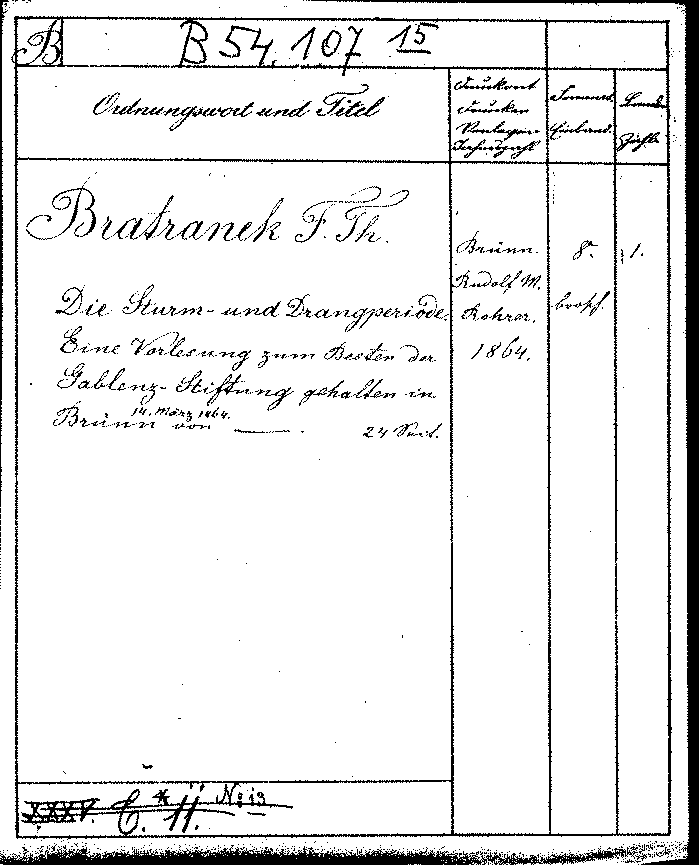 B
B 54.107 15
Ordnungswort und Titel
Druckort
Drucker
Verleger
Jahrzahl
Format
Einband
Bände
Zahl
Bratranek F. Th.
Die Sturm- und Drangperiode.
Eine Vorlesung zum Besten der
Gablenz-Stiftung gehalten in
14. März 1864.
Brünn von ——.
24 Seit.
Brünn.
Rudolf M.
Rohrer.
1864.
8°.
brosch.
1.
XXXV. C. *II. No 13